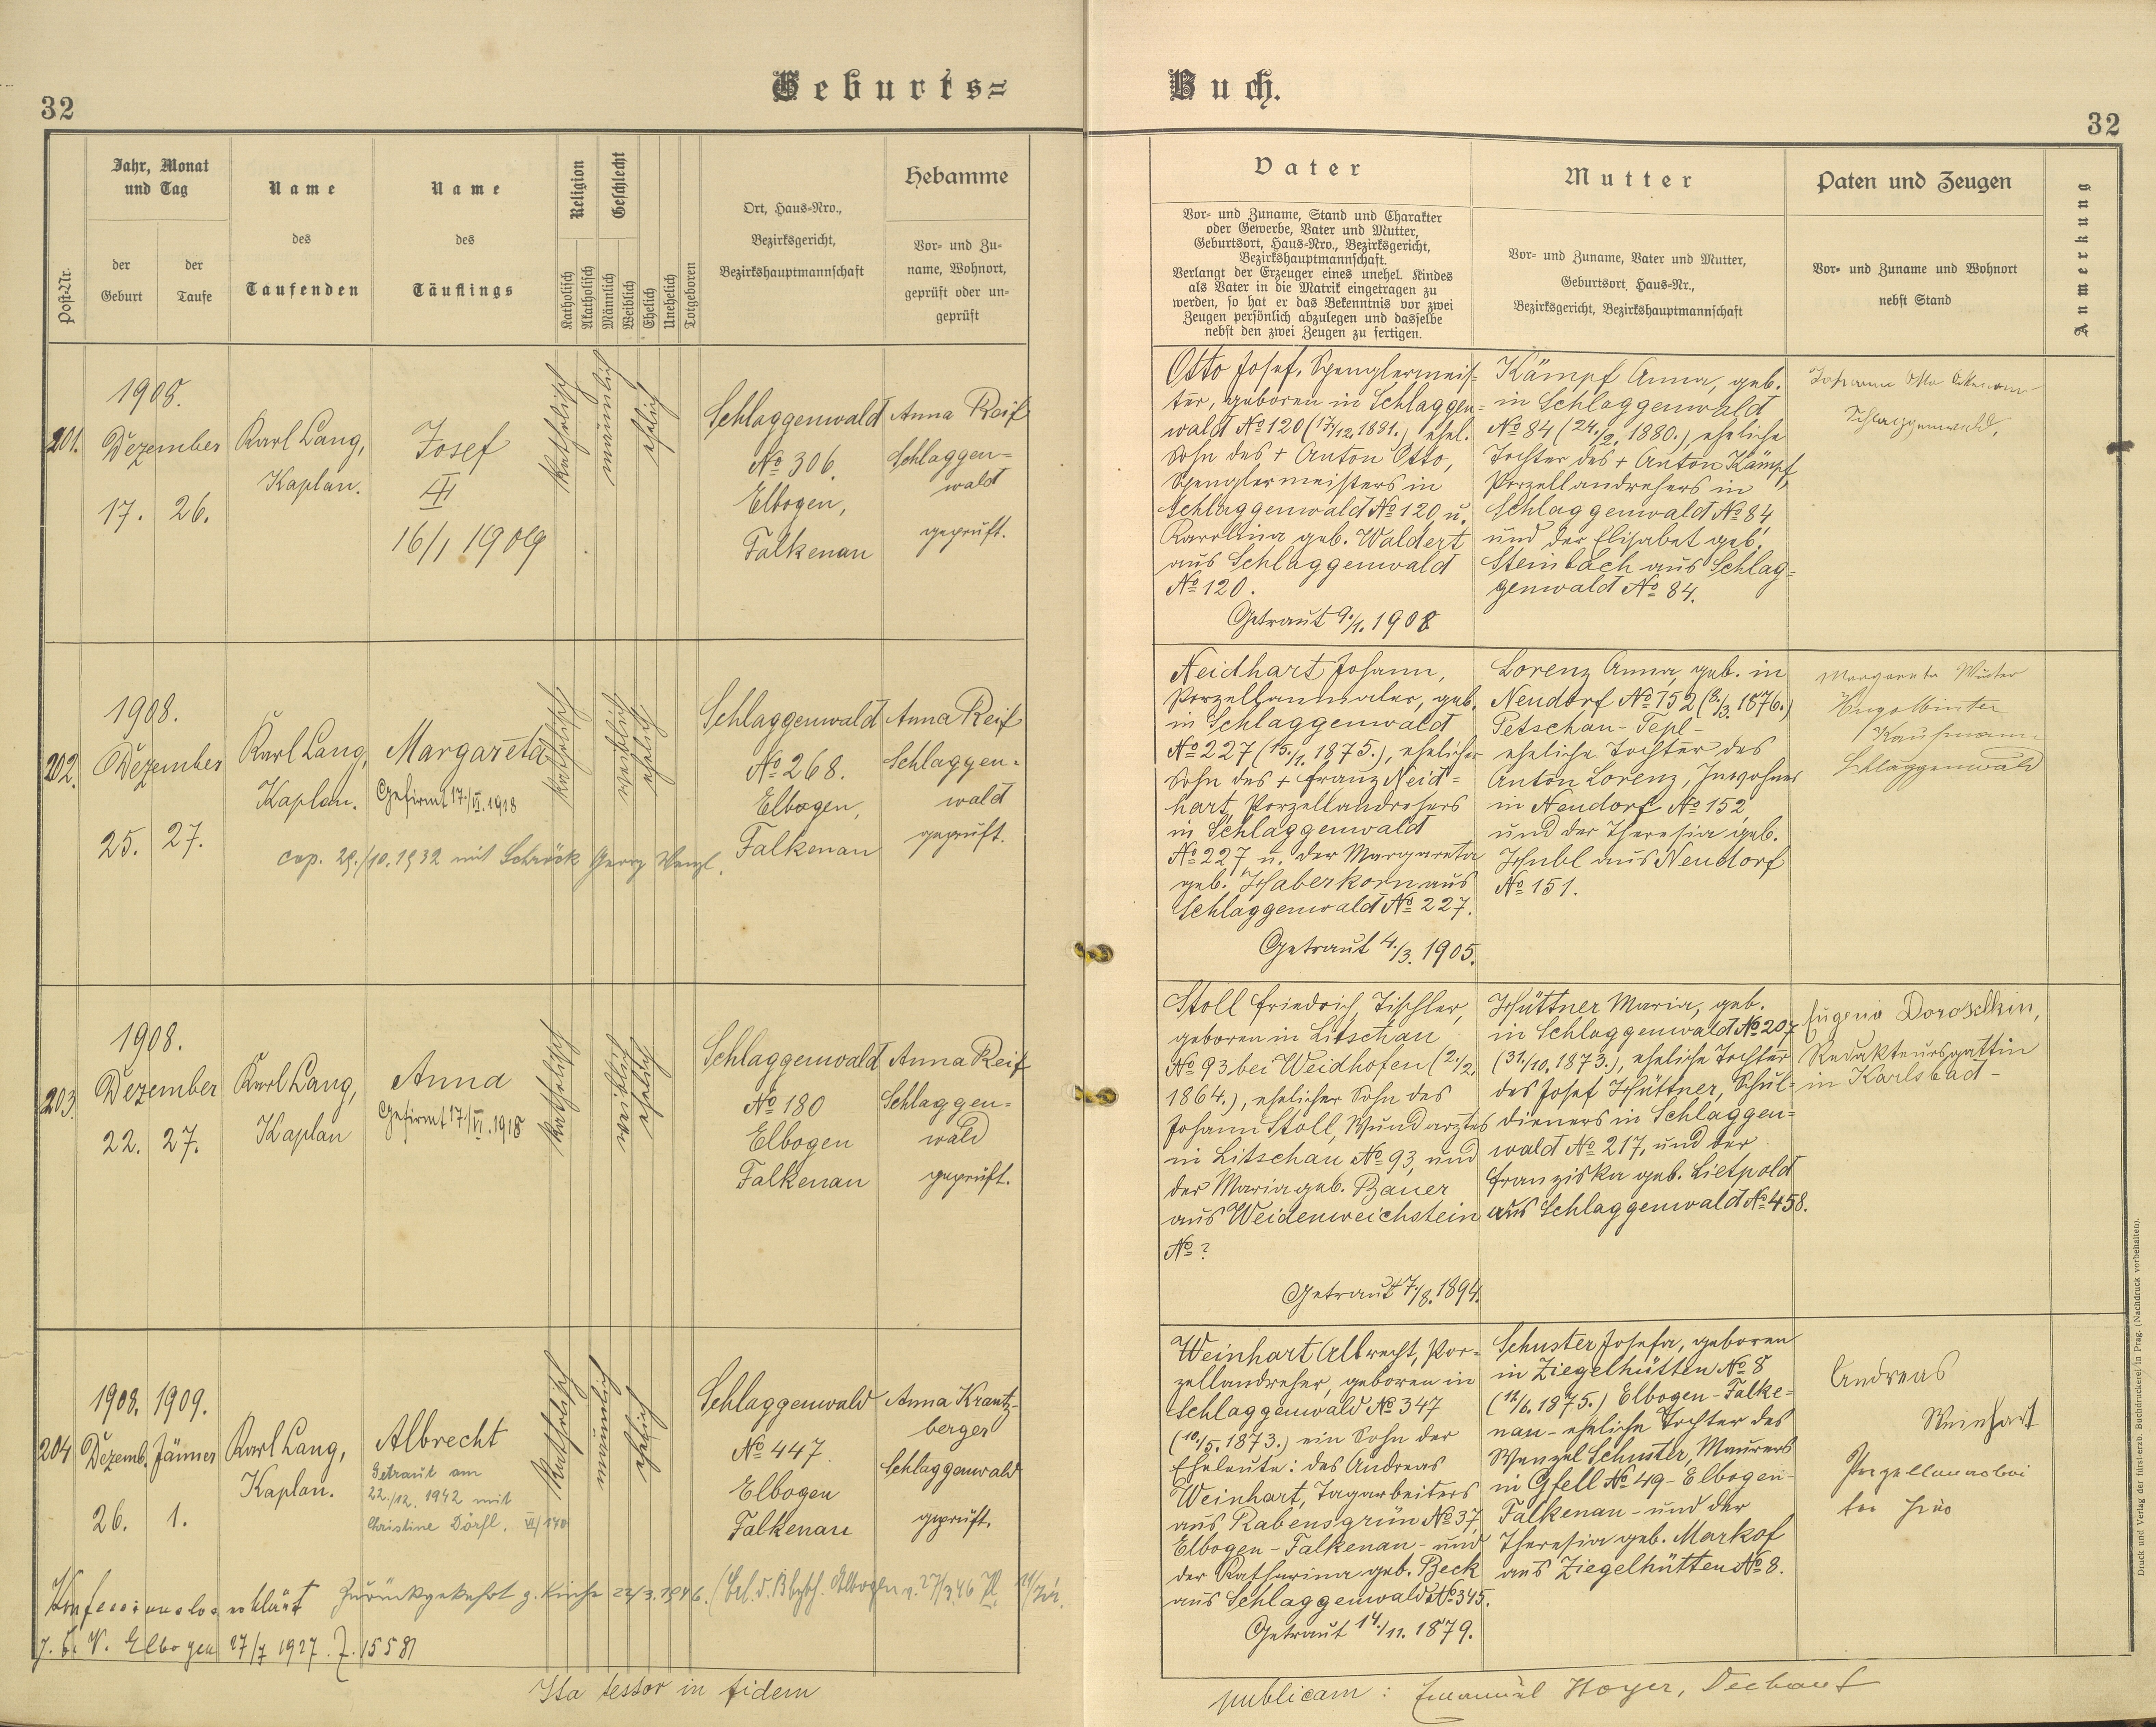 32
Geburts=
Post-Nr.
Jahr, Monat
und Tag
der
Geburt
der
Taufe
Name
des
Taufenden
Name
des
Täuflings
Religion
Katholisch
Akatholisch
Geschlecht
Männlich
Weiblich
Ehelich
Unehelich
Totgeboren
Ort, Haus-Nro.,
Bezirksgericht,
Bezirkshauptmannschaft
Hebamme
Vor- und Zu-
name, Wohnort,
geprüft oder un-
geprüft
201.
1908.
Dezember
17. 26.
Karl Lang,
Kaplan.
Josef
16/1 1909
katholisch
männlich
ehelich
Schlaggenwald
No 306.
Elbogen,
Falkenau
Anna Reif
Schlaggen=
wald
geprüft.
202.
1908.
Dezember
25. 27.
Karl Lang,
Kaplan.
Margareta
Gefirmt 17./VI.1918
cop. 29./10.1932 mit Schröck Georg Wenzl.
katholisch
weiblich
ehelich
Schlaggenwald
No 268.
Elbogen,
Falkenau
Anna Reif
Schlaggen=
wald
geprüft.
203.
1908.
Dezember
22. 27.
Karl Lang,
Kaplan
Anna
Gefirmt 17./VI.1918
katholisch
weiblich
ehelich
Schlaggenwald
No 180
Elbogen
Falkenau
Anna Reif
Schlaggen=
wald
geprüft.
204
1908. 1909.
Dezemb. Jänner
26. 1.
Karl Lang,
Kaplan.
Albrecht
Getraut am
22./12. 1942 mit
Christine Dörfl. VI/140
katholisch
männlich
ehelich
Schlaggenwald
No 447
Elbogen
Falkenau
Anna Krantz-
berger
Schlaggenwald
geprüft.
Konfessionslos erklärt Zurückgekehrt z. Kirche 22/3.1946.
Elbogen 27/7 1927. Z. 15581
Ita testor in fidem
Buch.
32
Vater
Vor- und Zuname, Stand und Charakter
oder Gewerbe, Vater und Mutter,
Geburtsort, Haus-Nro., Bezirksgericht,
Bezirkshauptmannschaft.
Verlangt der Erzeuger eines unehel. Kindes
als Vater in die Matrik eingetragen zu
werden, so hat er das Bekenntnis vor zwei
Zeugen persönlich abzulegen und dasselbe
nebst den zwei Zeugen zu fertigen.
Mutter
Vor- und Zuname, Vater und Mutter,
Geburtsort, Haus-Nr.,
Bezirksgericht, Bezirkshauptmannschaft
Paten und Zeugen
Vor- und Zuname und Wohnort
nebst Stand
Anmerkung
Otto Josef, Spenglermeis=
ter, geboren in Schlaggen=
wald No 120 (17./12.1881.) ehel.
Sohn des + Anton Otto,
Spenglermeisters in
Schlaggenwald No 120, u.
Karolina geb. Waldert
aus Schlaggenwald
No 120.
Getraut 9./1. 1908
Kämpf Anna, geb.
in Schlaggenwald
No 84 (24./2. 1880.) eheliche
Tochter des + Anton Kämpf,
Porzellandrehers in
Schlaggenwald No 84,
und der Elisabet geb.
Steinbach aus Schlag=
genwald No 84.
Johanna Otto
Schlaggenwald.
Neidhart Johann,
Porzellanmaler, geb.
in Schlaggenwald
No 227 (15./1. 1875.), ehelicher
Sohn des + Franz Neid=
hart, Porzellandrehers
in Schlaggenwald
No 227 u. der Margareta
geb. Haberkorn aus
Schlaggenwald No 227.
Getraut 4./3. 1905.
Lorenz Anna, geb. in
Neudorf No 152 (8./3. 1876.)
Petschau-Tepl-
eheliche Tochter des
Anton Lorenz, Inwohner
in Neudorf No 152,
und der Theresia geb.
Hubl aus Neudorf
No 151.
Margareta Winter
Hugo Winter
Kaufmann
Schlaggenwald
Stoll Friedrich, Tischler,
geboren in Litschau
No 93 bei Weidhofen (2./2.
1864.), ehelicher Sohn des
Johann Stoll, Wundarztes
in Litschau No 93, und
der Maria geb. Bauer
aus Weidenweichstein
No ?
Getraut 7./8. 1894.
Hüttner Maria, geb.
in Schlaggenwald No 207
(31./10. 1873.), eheliche Tochter
des Josef Hüttner, Schul=
dieners in Schlaggen=
wald No 217, und der
Franziska geb. Lietpold
aus Schlaggenwald No 458.
Eugenia Doroschkin,
Redakteursgattin
in Karlsbad-
Weinhart Albrecht, Por=
zellandreher, geboren in
Schlaggenwald No 347
(10./5. 1873.) ein Sohn der
Eheleute: des Andreas
Weinhart, Tagarbeiters
aus Rabensgrün No 37,
Elbogen-Falkenau- und
der Katharina geb. Beck
aus Schlaggenwald No 345.
Getraut 14./11. 1879.
Schuster Josefa, geboren
in Ziegelhütten No 8
(12/6. 1875.) Elbogen-Falke=
nau-eheliche Tochter des
Wenzel Schuster, Maurers
in Gfell No 49-Elbogen-
Falkenau-und der
Theresia geb. Markof
aus Ziegelhütten No 8.
Andreas
Weinhart
Porzellanarbei
ter hier
publicam: Emanuel Hoyer, Dechant
Druck und Verlag der fürsterzb. Buchdruckerei in Prag. (Nachdruck vorbehalten).